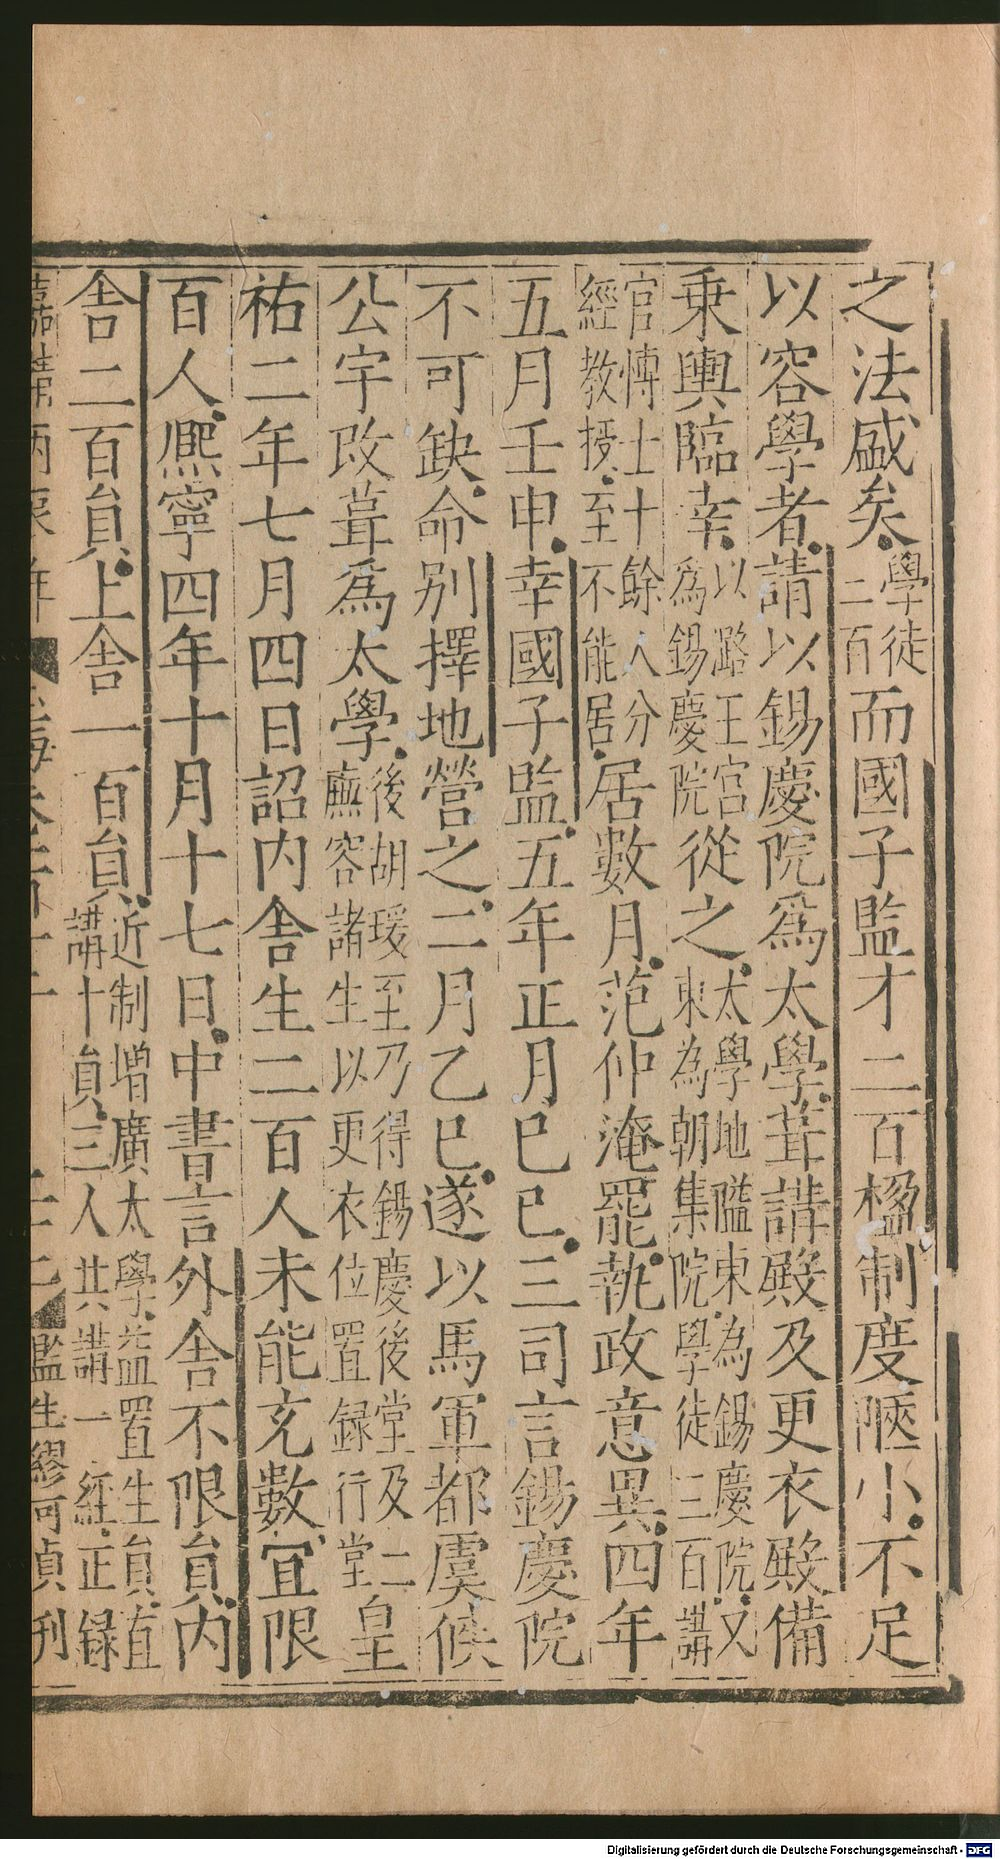 之法盛矣學徒二百而國子監才二百楹制度陿小不足
以容學者請以錫慶院爲太學葺講殿及更衣殿備
乗輿臨幸以潞王宫為錫慶院從之太學地隘東為錫慶院又東為朝集院學徒三百講
官博士十餘人分經教授至不能居居數月范仲淹罷執政意異四年
五月壬申幸國子監五年正月已巳三司言錫慶院
不可缺命别擇地營之二月乙巳遂以馬軍都虞候
公宇改葺爲太學後胡瑗至乃得錫慶後堂及二廡容諸生以更衣位置録行堂皇
祐二年七月四日詔内舎生二百人未能充數宜限
百人熈寧四年十月十七日中書言外舎不限貟内
舎二百貟上舎一百貟近制増廣太學益置生貟直講十貟三人共講一經正録
監生繆可貞刋
Digitalisierung gefördert durch die Deutsche Forschungsgemeinschaft - DFG